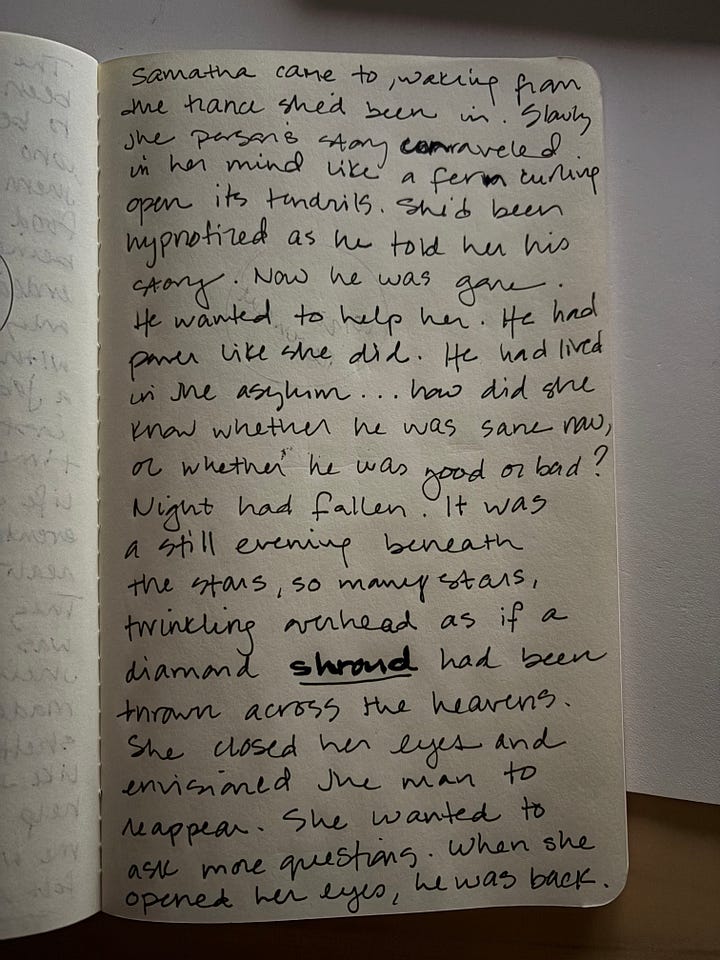 Samatha came to, waking from
the trance she'd been in. Slowly
the person's story unraveled
in her mind like a fern curling
open its tendrils. She'd been
hypnotized as he told her his
story. Now he was gone.
He wanted to help her. He had
power like she did. He had lived
in the asylum... how did she
know whether he was sane now,
or whether he was good or bad?
Night had fallen. It was
a still evening beneath
the stars, so many stars,
twinkling overhead as if a
diamond shroud had been
thrown across the heavens.
She closed her eyes and
envisioned the man to
reappear. She wanted to
ask more questions. When she
opened her eyes, he was back.